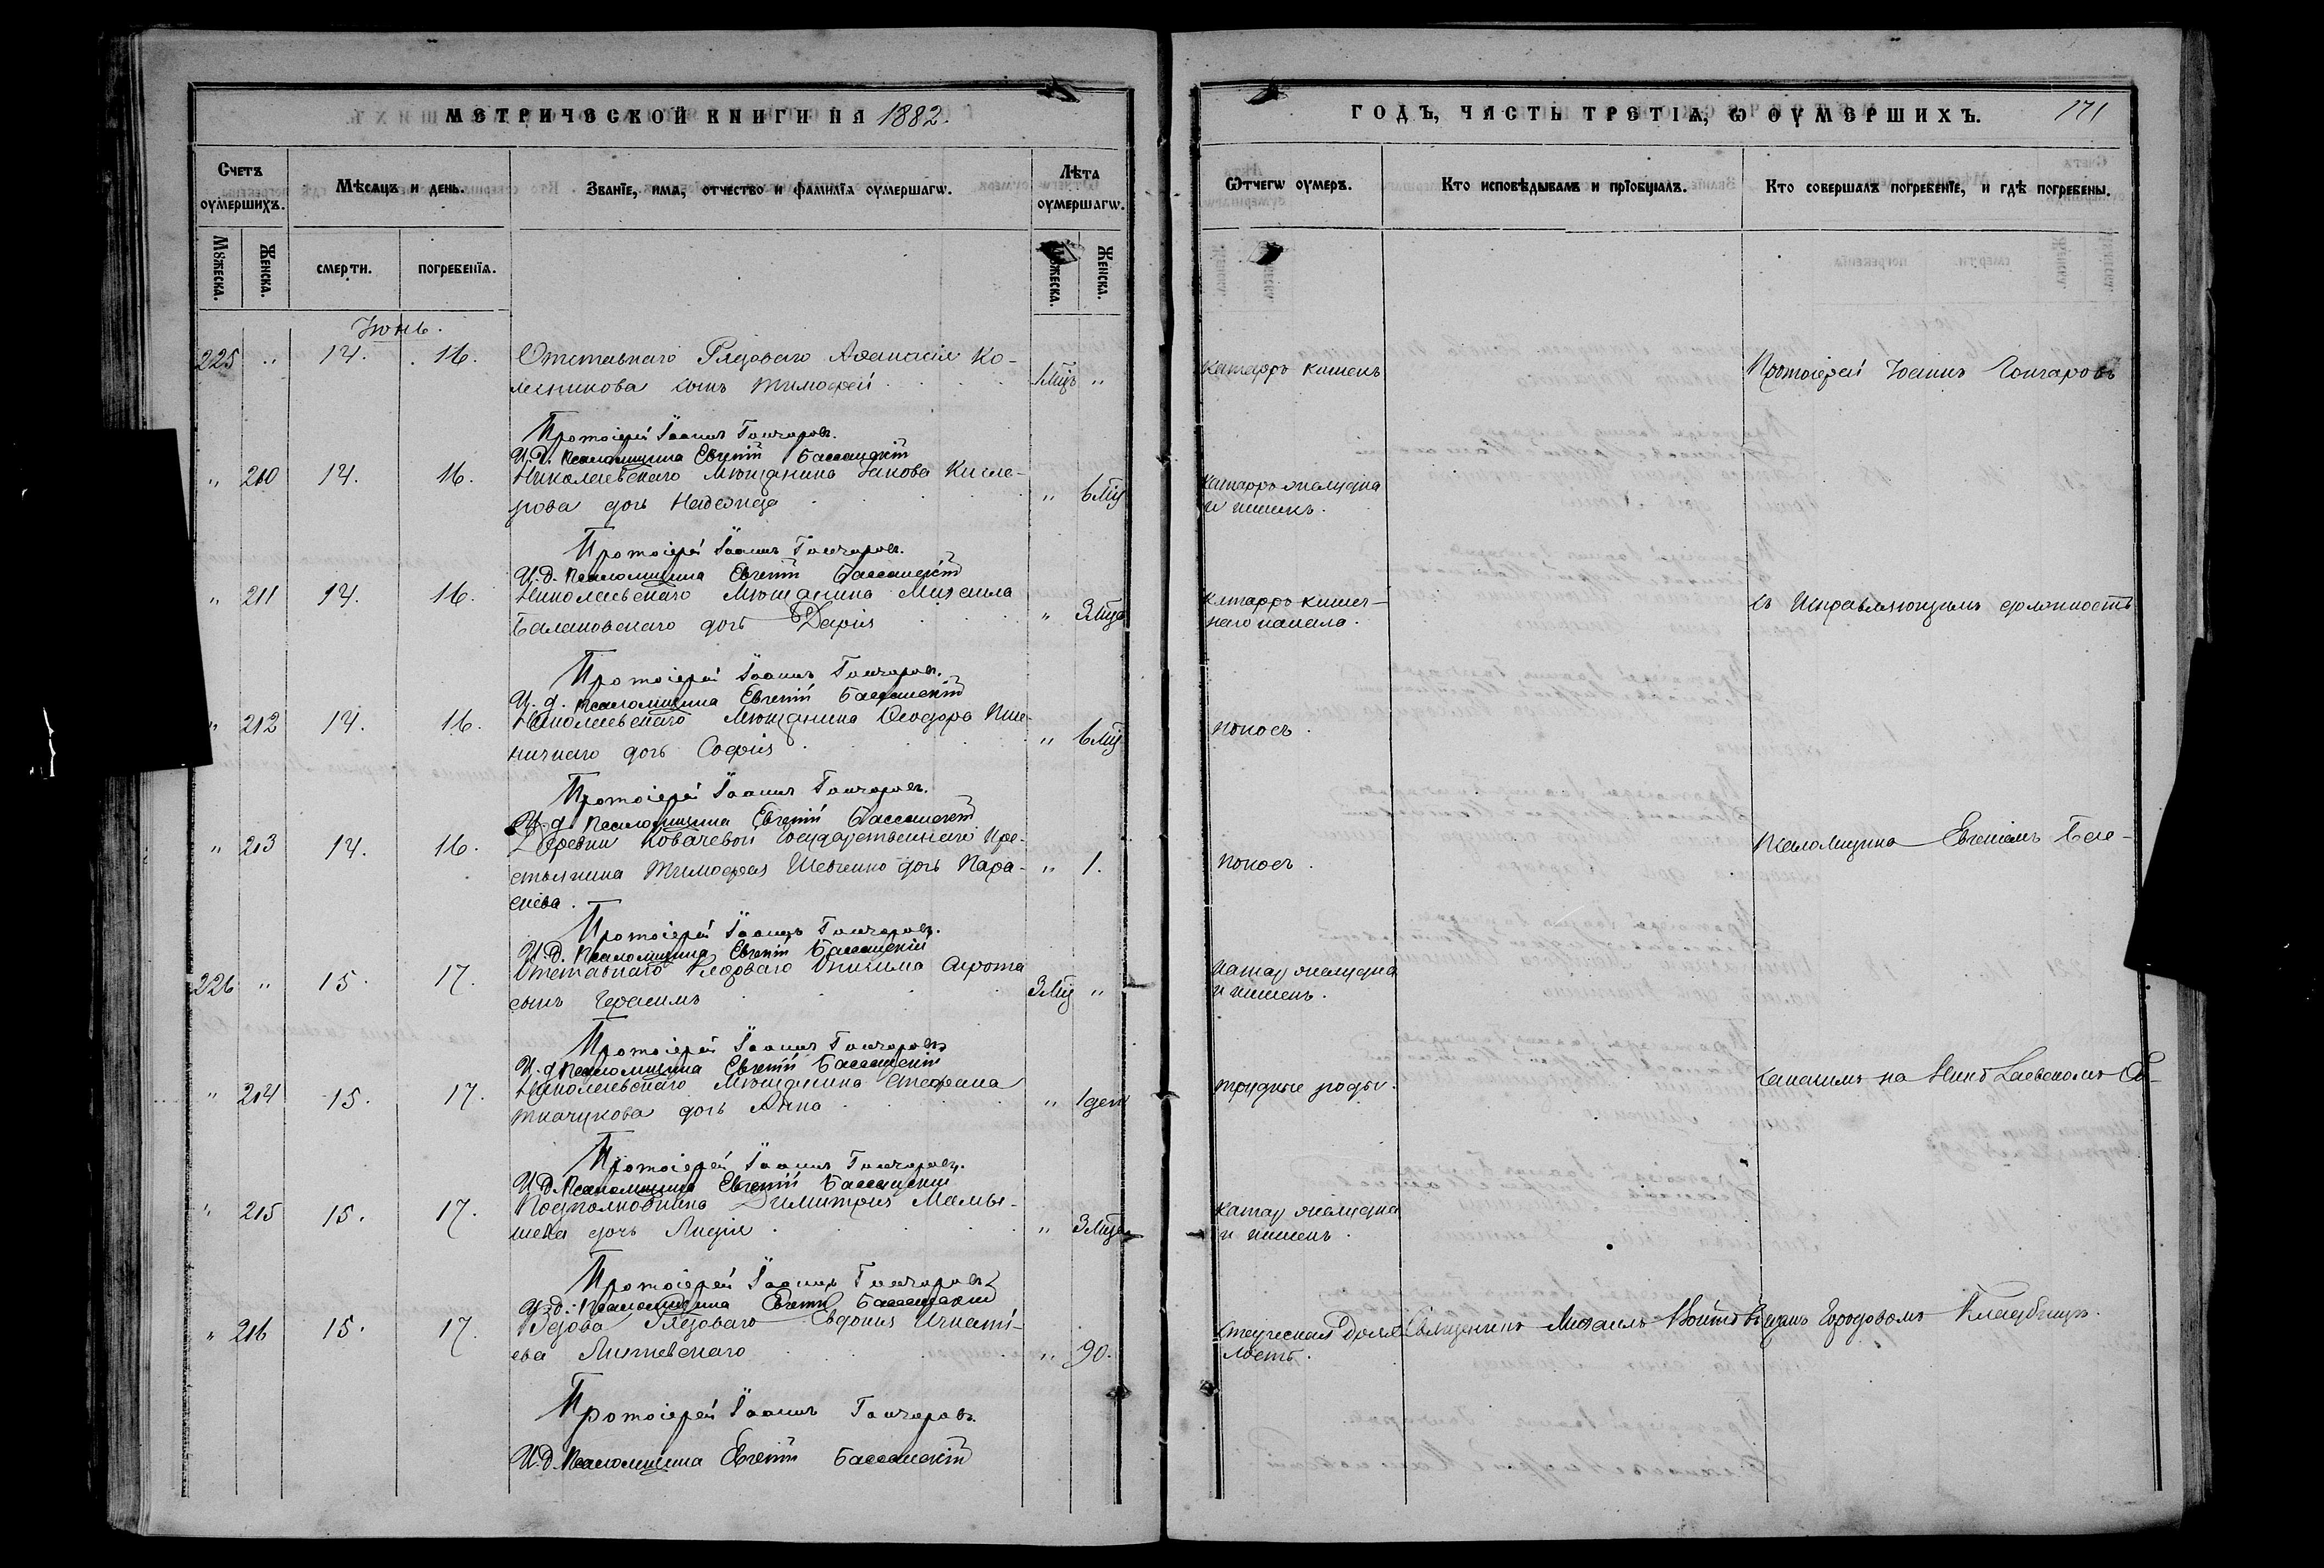 МЕТРИЧЕСКОЙ КНИГИ НА 1882.
ГОДЪ, ЧАСТЬ ТРЕТІѦ, Ѡ ОУМЕРШИХЪ. 171
Счетъ оумершихъ.
Мѣсѧцъ и день.
Званїе, имѧ, отчество и фамилїѧ оумершагѡ.
Лѣта оумершагѡ.
Ѿчегѡ оумеръ.
Кто исповѣдывалъ и прїобщалъ.
Кто совершалъ погребенїе, и гдѣ погребены.
Мꙋжеска.
Женска.
смерти.
погребенїѧ.
Мꙋжеска.
Женска.
Іюнь.
225 " 14. 16. Отставнаго Рядоваго Аѳанасія Ко-
лесникова сынъ Тимофей 1 мцъ " катарръ кишекъ Протоіерей Іоаннъ Гончаровъ
Протоіерей Іоаннъ Гончаровъ.
И. д. Псаломщика Евгеній Бассанскій
" 210 14. 16. Николаевскаго Мѣщанина Іакова Кисле-
рова дочь Надежда " 6 мц катарръ желудка
и кишекъ.
Протоіерей Іоаннъ Гончаровъ.
И. д. Псаломщика Евгеній Бассанскій
" 211 14. 16. Николаевскаго Мѣщанина Михаила
Балановскаго дочь Дарія " 3 мца катарръ кишеч-
наго канала. съ Исправляющимъ должность
Протоіерей Іоаннъ Гончаровъ.
И. д. Псаломщика Евгеній Бассанскій
" 212 14. 16. Николаевскаго Мѣщанина Ѳеодора Пше-
ничнаго дочь Софія " 6 мц поносъ.
Протоіерей Іоаннъ Гончаровъ.
И. д. Псаломщика Евгеній Бассанскій
" 213 14. 16. Деревни Ковачевой Государственнаго Кре-
стьянина Тимофея Шевченко дочь Пара- " 1. поносъ. Псаломщика Евгеніемъ Бас-
скева.
Протоіерей Іоаннъ Гончаровъ.
И. д. Псаломщика Евгеній Бассанскій
226 " 15. 17. Отставнаго Рядоваго Онисима Сирота
сынъ Герасимъ 3 мц " катар желудка
и кишекъ.
Протоіерей Іоаннъ Гончаровъ
И. д. Псаломщика Евгеній Бассанскій
" 214 15. 17. Николаевскаго Мѣщанина Стефана
Ткачукова дочь Анна " 1 ден трудные роды.
Протоіерей Іоаннъ Гончаровъ.
И. д. Псаломщика Евгеній Бассанскій
" 215 15. 17. Подполковника Димитрія Мамы-
шева дочь Лидія " 3 мца катар желудка
и кишекъ.
Протоіерей Іоаннъ Гончаровъ
И. д. Псаломщика Евгеній Бассанскій
" 216 15. 17. Вдова Рядоваго Евдокія Игнаті-
ева Литевскаго " 90. Священникъ Михаилъ Городовомъ Кладбищѣ.
Протоіерей Іоаннъ Гончаровъ.
И. д. Псаломщика Евгеній Бассанскій